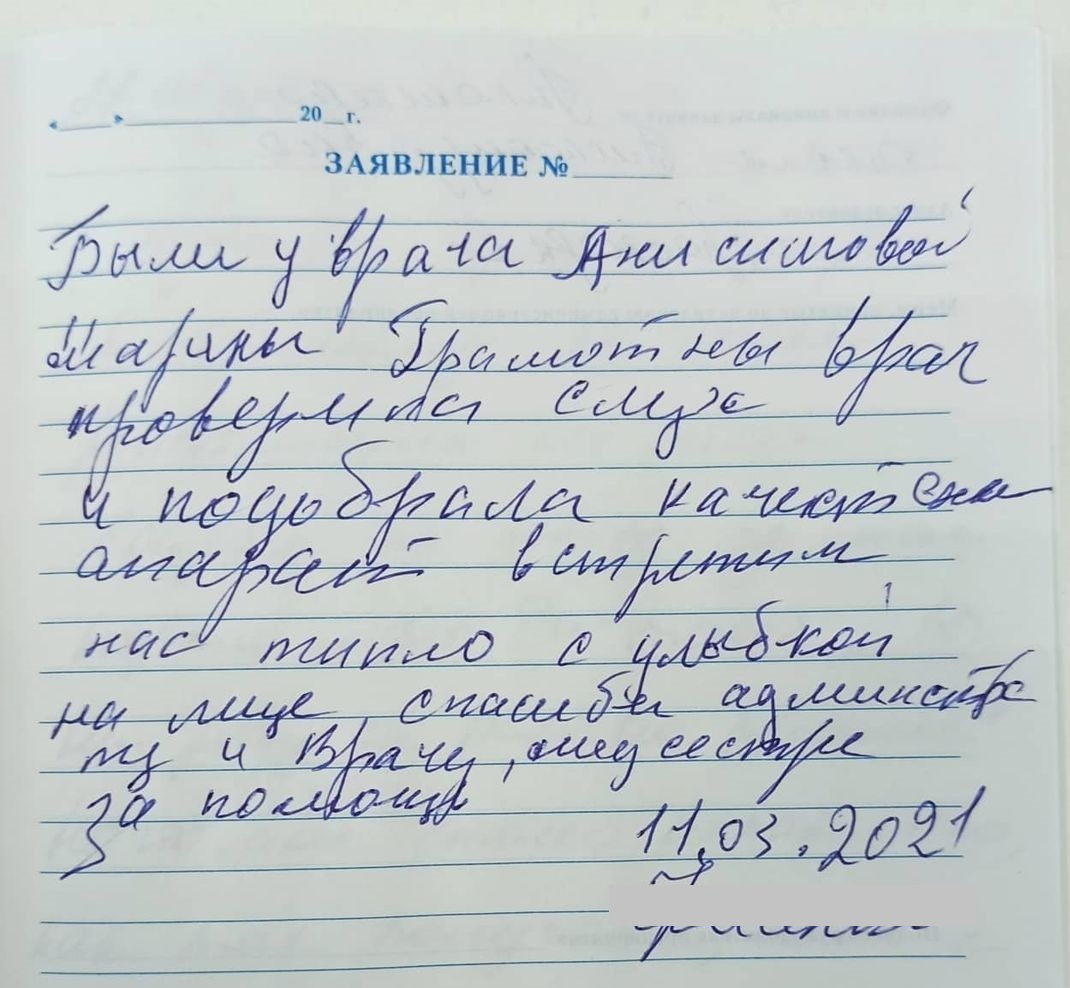 «____»______________20__г.
ЗАЯВЛЕНИЕ №______
Были у врача Анисимовой
Марины Грамотны врач
проверила слух
и подобрала
апарат встретили
нас типло с улыбкой
на лице, спасиби админстра
ту и врачу, медсестре
за помощь
11.03.2021